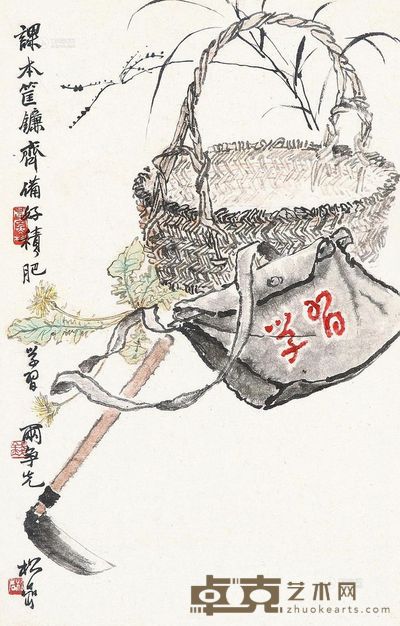 課本筐鐮齊備好積肥
学習兩争先
松岩
学習
卓克艺术网
zhuokearts.com